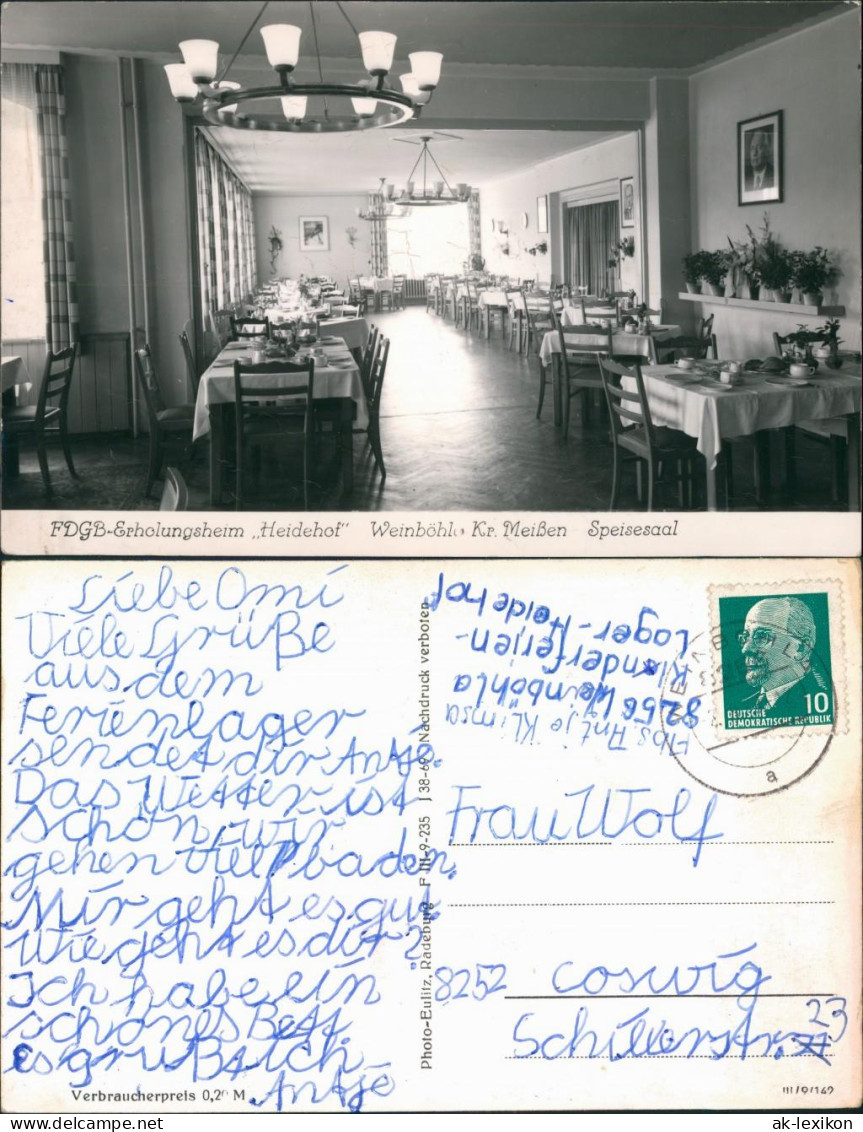 FDGB-Erholungsheim „Heidehof" Weinböhla Kr. Meißen Speisesaal
Liebe Omi
Viele Grüße
aus dem
Ferienlager
sendet dir Antje.
Das Wetter ist
schön, wir
gehen viel baden.
Mir geht es gut.
Wie geht es dir?
Ich habe ein
schönes Bett
es grüßt dich
Antje
Verbraucherpreis 0,20 M
Photo-Eulitz, Radeburg F III-9-235 J 38-69 Nachdruck verboten
Abs. Antje Klimsa
8256 Weinböhla
Kinderferien-
Lager-Heidehof
DEUTSCHE
DEMOKRATISCHE REPUBLIK
10
a
Frau Wolf
8252 Coswig
Schillerstr. 23
III/9/142
ak-lexikon